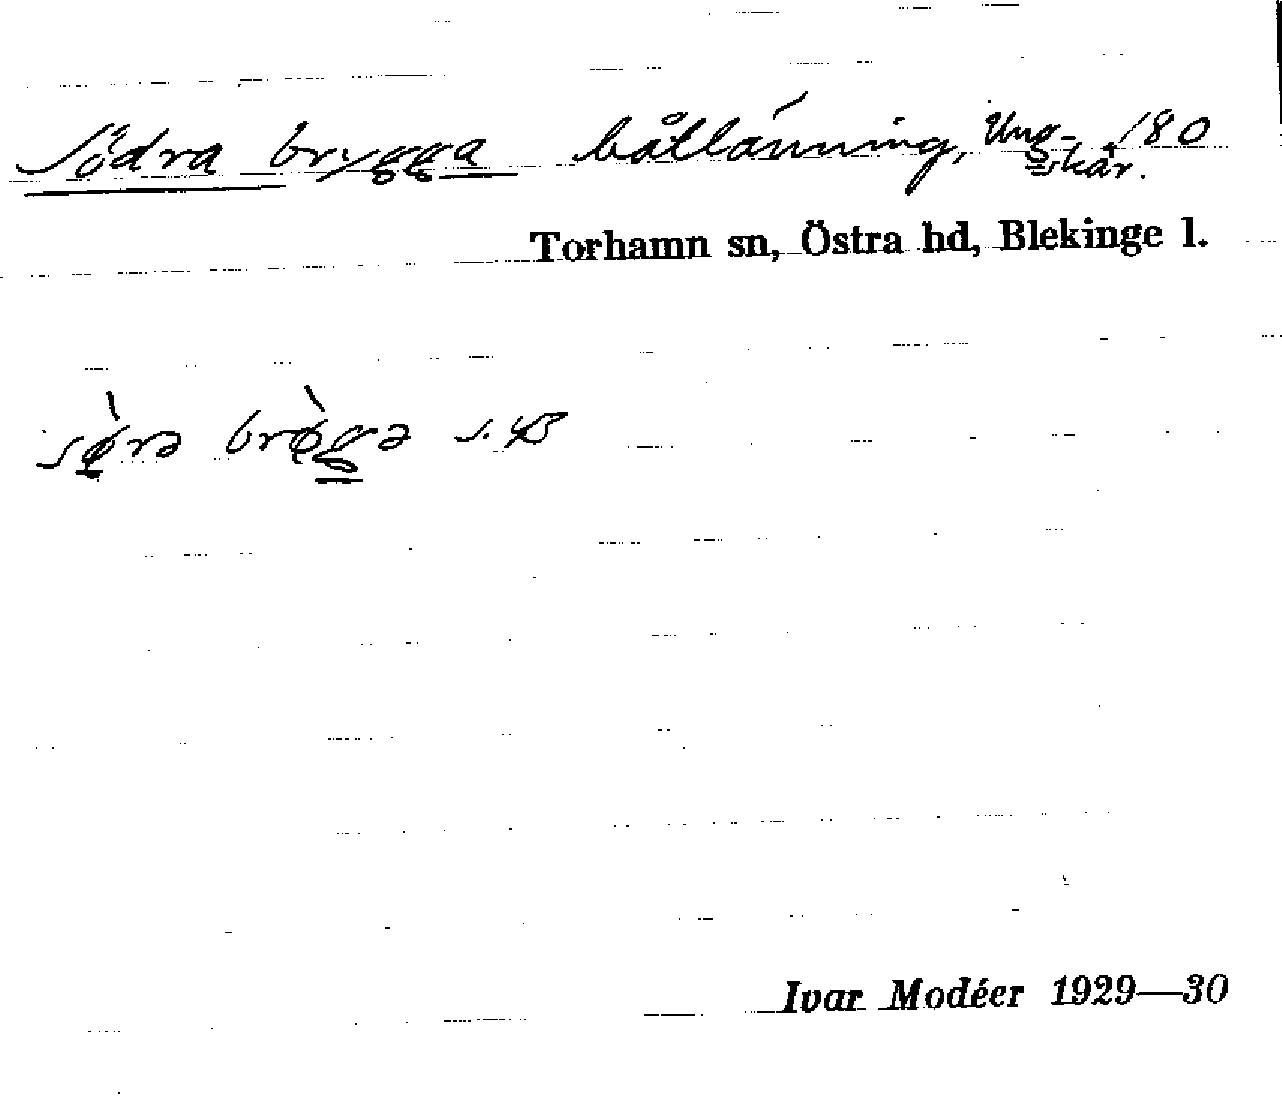 Södra brygga båtlänning, Ung- 180
skär.
Torhamn sn, Östra hd, Blekinge l.
sø̀rə brø̀gə s. B
Ivar Modéer 1929—30